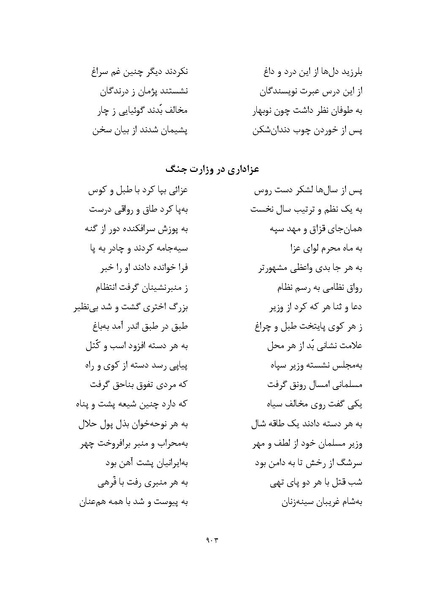 بلرزید دل‌ها از این درد و داغ	نکردند دیگر چنین غم سراغ
از این درس عبرت نویسندگان	نشستند پژمان ز درندگان
به طوفان نظر داشت چون نوبهار	مخالف بُدند گوئیایی ز چار
پس از خوردن چوب دندان‌شکن	پشیمان شدند از بیان سخن
عزاداری در وزارت جنگ
پس از سال‌ها لشکر دست روس	عزائی بپا کرد با طبل و کوس
به یک نظم و ترتیب سال نخست	به‌پا کرد طاق و رواقی درست
همان‌جای قزاق و مهد سپه	به پوزش سرافکنده دور از گنه
به ماه محرم لوای عزا	سیه‌جامه کردند و چادر به پا
به هر جا بدی واعظی مشهورتر	فرا خوانده دادند او را خبر
رواق نظامی به رسم نظام	ز منبرنشینان گرفت انتظام
دعا و ثنا هر که کرد از وزیر	بزرگ اختری گشت و شد بی‌نظیر
ز هر کوی پایتخت طبل و چراغ	طبق در طبق اندر آمد به‌باغ
علامت نشانی بُد از هر محل	به هر دسته افزود اسب و کُتل
به‌مجلس نشسته وزیر سپاه	پیاپی رسد دسته از کوی و راه
مسلمانی امسال رونق گرفت	که مردی تفوق بناحق گرفت
یکی گفت روی مخالف سیاه	که دارد چنین شیعه پشت و پناه
به هر دسته دادند یک طاقه شال	به هر نوحه‌خوان بذل پول حلال
وزیر مسلمان خود از لطف و مهر	به‌محراب و منبر برافروخت چهر
سرشگ از رخش تا به دامن بود	به‌ایرانیان پشت آهن بود
شب قتل با هر دو پای تهی	به هر منبری رفت با فُرهی
به‌شام غریبان سینه‌زنان	به پیوست و شد با همه هم‌عنان
۹۰۳